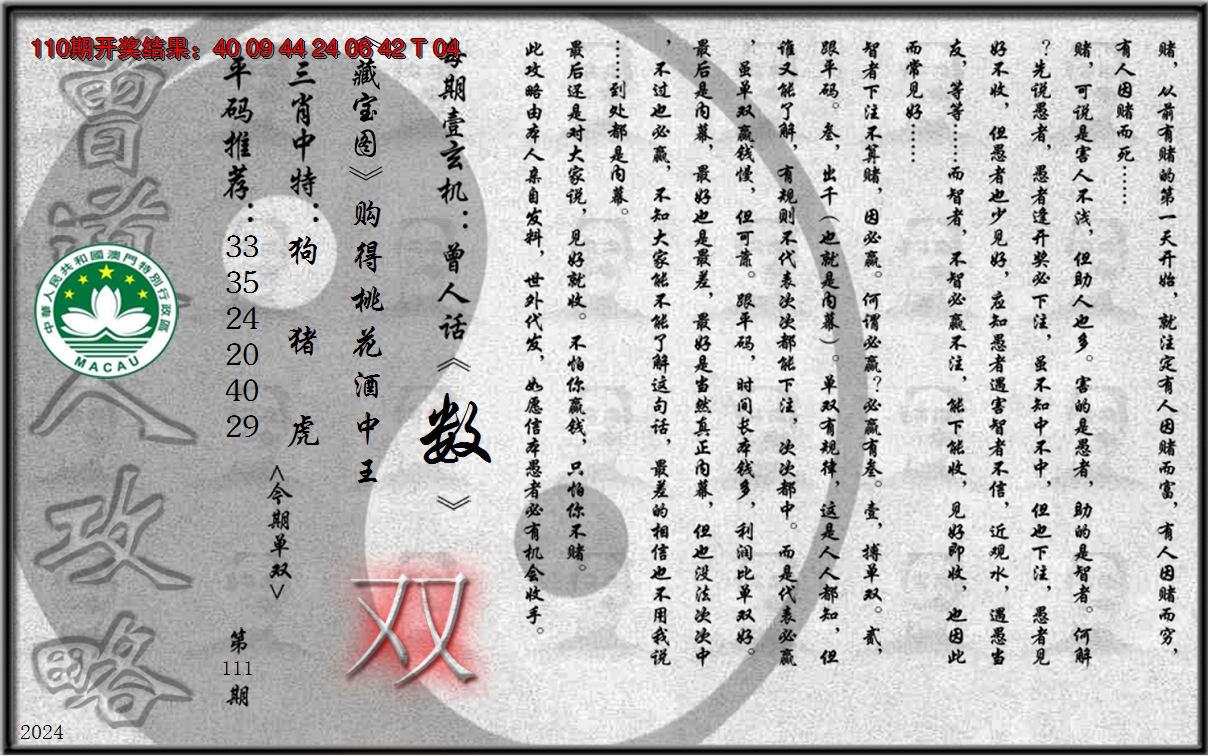 110期开奖结果：40 09 44 24 06 42 T 04
赌，从前有赌的第一天开始，就注定有人因赌而富，有人因赌而穷，
有人因赌而死……
赌，可说是害人不浅，但助人也多。害的是愚者，助的是智者。何解
？先说愚者，愚者逢开奖必下注，虽不知中不中，但也下注，愚者见
好不收，但愚者也少见好，应知愚者遇害智者不信，近观水，遇愚当
友，等等……而智者，不智必赢不注，能下能收，见好即收，也因此
而常见好……
智者下注不算赌，因必赢。何谓必赢？必赢有叁。壹，搏单双。贰，
跟平码。叁，出千（也就是内幕）。单双有规律，这是人人都知，但
谁又能了解，有规则不代表次次都能下注，次次都中。而是代表必赢
，虽单双赢钱慢，但可靠。跟平码，时间长本钱多，利润比单双好。
最后是内幕，最好也是最差，最好是当然真正内幕，但也没法次次中
，不过也必赢，不知大家能不能了解这句话，最差的相信也不用我说
……到处都是内幕。
最后还是对大家说，见好就收。不怕你赢钱，只怕你不赌。
此攻略由本人亲自发料，世外代发，如愿信本愚者必有机会收手。
每期壹玄机：曾人话《数》
《藏宝图》购得桃花酒中王
双
三肖中特：狗 猪 虎
<今期单双>
平码推荐：
33
35
24
20
40
29
第
111
期
曾道人攻略
中華人民共和國澳門特別行政區
MACAU
2024